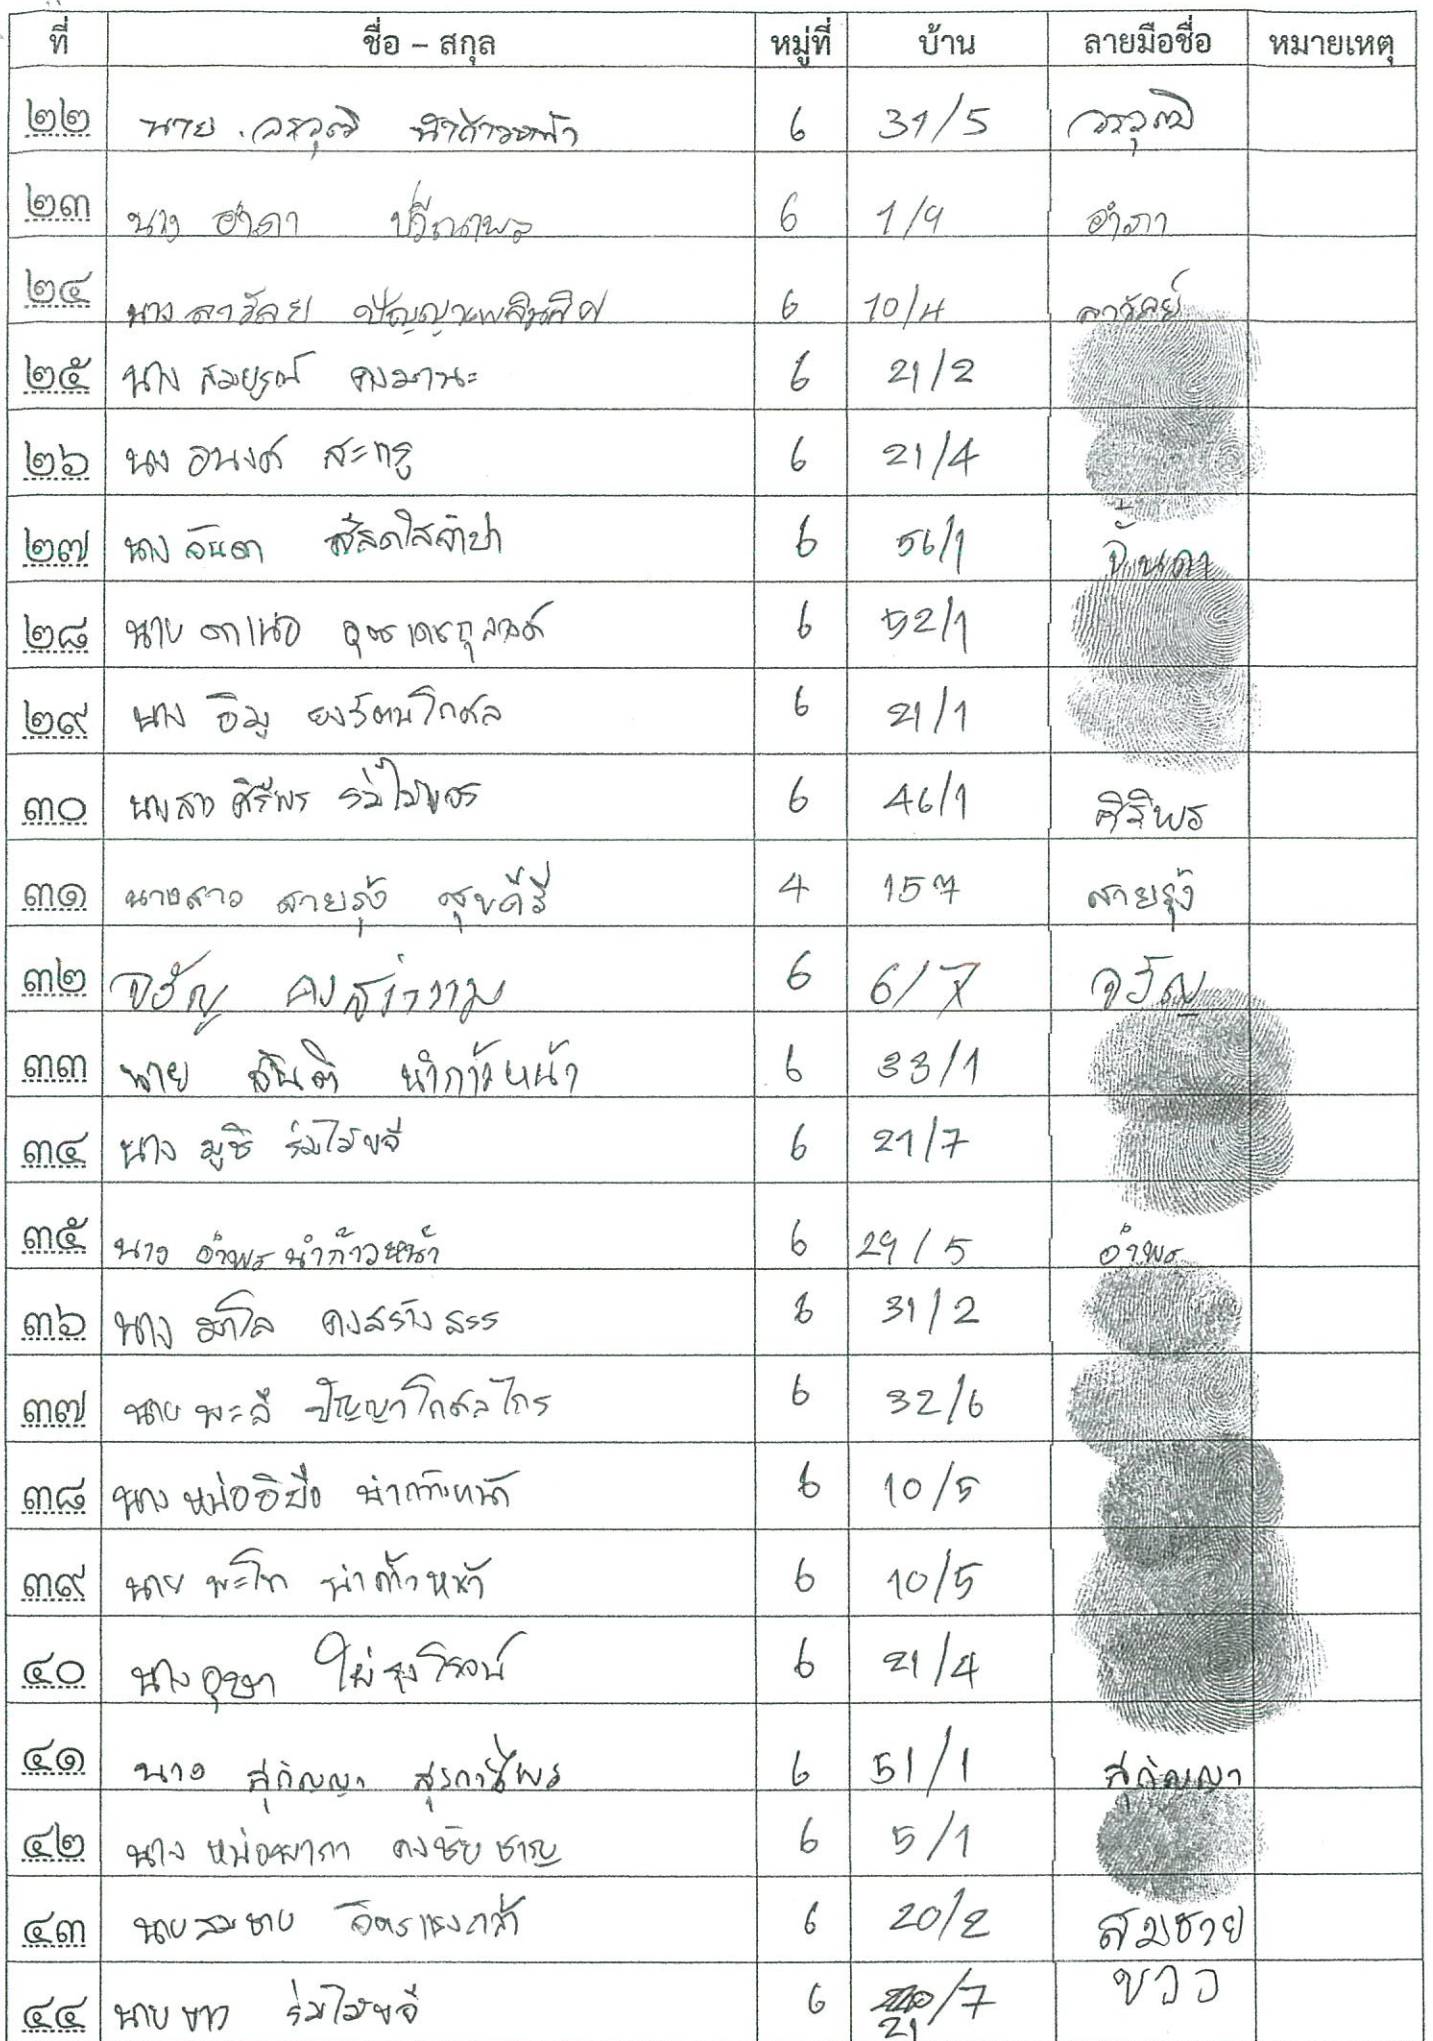 ที่ ชื่อ – สกุล หมู่ที่ บ้าน ลายมือชื่อ หมายเหตุ
๒๒ นาย วรวุฒิ นำก้าวหน้า 6 31/5 วรวุฒิ
๒๓ นาง อำภา ปวีณาพร 6 1/9 อำภา
๒๔ นาง ลาวัลย์ 6 10/4 ลาวัลย์
๒๕ นาง สมบูรณ์ คงมานะ 6 21/2
๒๖ นาง อนงค์ 6 21/4
๒๗ นาง จันดา 6 56/1 จันดา
๒๘ นาย 6 52/1
๒๙ นาง อิมู ยงรัตนโกศล 6 21/1
๓๐ นางสาว ศิริพร ร่มไม้ขจร 6 46/1 ศิริพร
๓๑ นางสาว สายรุ้ง สุขคีรี 4 157 สายรุ้ง
๓๒ จรัญ คงสง่างาม 6 6/7 จรัญ
๓๓ นาย สันติ นำก้าวหน้า 6 33/1
๓๔ นาง มูชิ ร่มไม้ขจี 6 21/7
๓๕ นาง อำพร นำก้าวหน้า 6 29/5 อำพร
๓๖ นาง คงสร้างสรร 6 31/2
๓๗ นาย พะลึ ปัญญาโกศลไกร 6 32/6
๓๘ นาง หน่ออิบือ นำก้าวหน้า 6 10/5
๓๙ นาย พะโท นำก้าวหน้า 6 10/5
๔๐ นาง อุษา 6 21/4
๔๑ นาง สุกัญญา 6 51/1 สุกัญญา
๔๒ นาง คงชัยชาญ 6 5/1
๔๓ นาย สมชาย จิตรแรงกล้า 6 20/2 สมชาย
๔๔ นาย ขาว ร่มไม้ขจี 6 21/7 ขาว